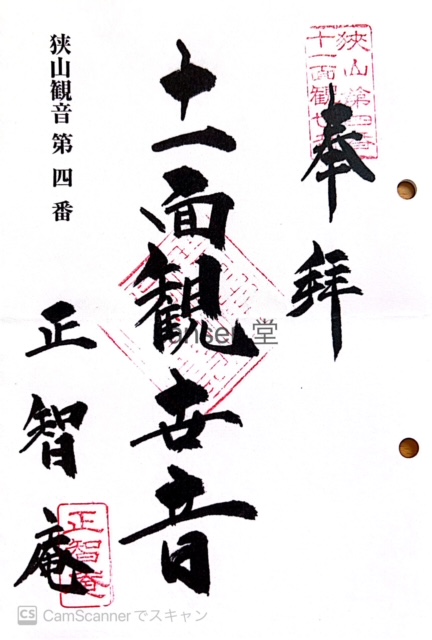 狭山第四番
十一面観世音
奉拝
十一面観世音
狭山観音第四番
正智庵
正智庵
CS CamScannerでスキャン